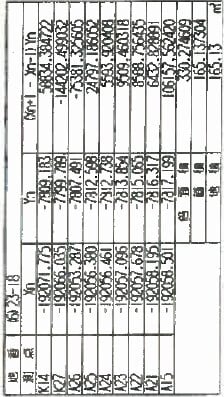 地番 (6)23-18
測点 Xn Yn (Xn+1 - Xn-1)Yn
K14 -192071.775 -7809.183 58834.384722
K27 -192066.035 -7799.789 -144202.499032
A26 -192053.287 -7807.491 -75381.325605
A25 -192056.380 -7812.598 24797.186052
A24 -192056.461 -7812.738 5593.920408
A23 -192057.096 -7813.854 9509.460318
A22 -192057.678 -7815.065 8588.756435
A21 -192058.195 -7816.317 6432.828891
A15 -192058.501 -7817.199 106157.562420
330.274609
面積 165.1373045
地積 165.13 ㎡